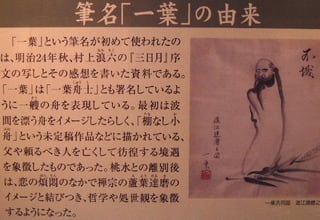 筆名「一葉」の由来
「一葉」という筆名が初めて使われたの
は、明治24年秋、村上浪六の「三日月」序
文の写しとその感想を書いた資料である。
「一葉」は「一葉舟士」とも署名しているよ
うに一艘の舟を表現している。最初は波
間を漂う舟をイメージしたらしく、「棚なし小
舟」という未定稿作品などに描かれている、
父や頼るべき人を亡くして彷徨する境遇
を象徴したものであった。桃水との離別後
は、恋の煩悶のなかで禅宗の蘆葉達磨の
イメージと結びつき、哲学や処世観を象徴
するようになった。